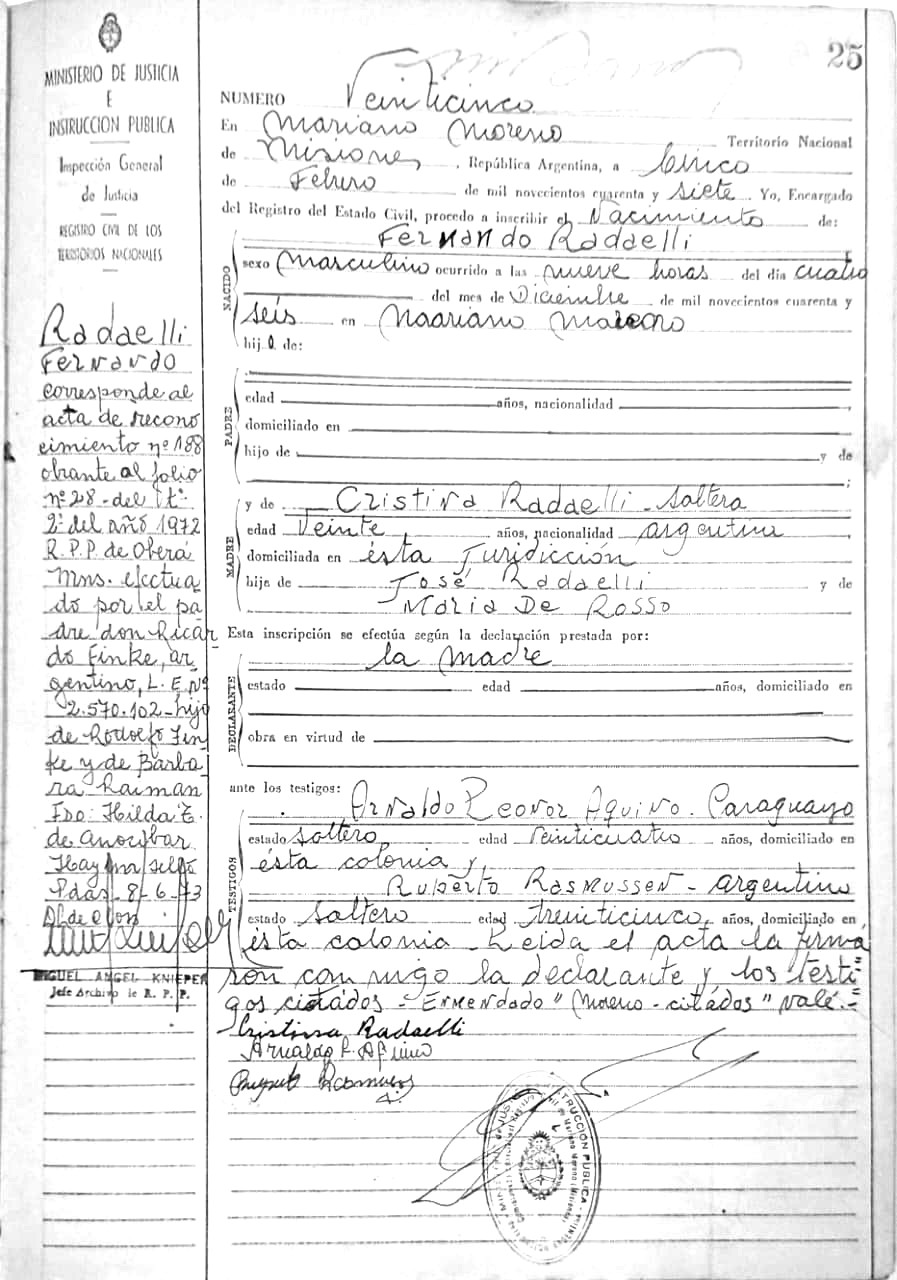 25
MINISTERIO DE JUSTICIA
E
INSTRUCCION PUBLICA
Inspección General
de Justicia
REGISTRO CIVIL DE LOS
TERRITORIOS NACIONALES
Radaelli
Fernando
corresponde al
acta de recono
cimiento nº 188
obrante al folio
nº 28 - del tº
2º del año 1972
R.P.P. de Oberá
Mns. efectua
do por el pa
dre don Ricar
do Finke, ar
gentino, L. E. Nº
2.570.102 - hijo
de Rodolfo Fin
ke y de Bárba
ra Raiman
Fdo: Hilda E.
de
Hay un sello
Pdas. 8-6-73
MIGUEL ANGEL KNIEPER
Jefe Archivo de R. P. P.
NUMERO Veinticinco
En Mariano Moreno Territorio Nacional
de Misiones, República Argentina, a Cinco
de Febrero de mil novecientos cuarenta y siete Yo, Encargado
del Registro del Estado Civil, procedo a inscribir el Nacimiento de:
NACIDO
Fernando Radaelli
sexo Masculino ocurrido a las nueve horas del día cuatro
del mes de Diciembre de mil novecientos cuarenta y
séis en Maariano Moreno
hijo de:
PADRE
edad años, nacionalidad ,
domiciliado en
hijo de y de
;
MADRE
y de Cristina Radaelli - soltera
edad Veinte años, nacionalidad argentina,
domiciliada en ésta Juridicción
hija de José Radaelli y de
Maria De Rosso
Esta inscripción se efectúa según la declaración prestada por:
DECLARANTE
la madre
estado edad años, domiciliado en
obra en virtud de
ante los testigos:
TESTIGOS
Arnaldo Leonor Aquino. Paraguayo
estado Soltero edad veinticuatro años, domiciliado en
ésta colonia y
Ruberto Rasmussen - argentino
estado Soltero edad treinticinco, años, domiciliado en
ésta colonia - Leida el acta la firma
ron con migo la declarante y los testi
gos citádos - Enmendado "Moreno - citádos" vale.-
Cristina Radaelli
Arnaldo L. Aquino